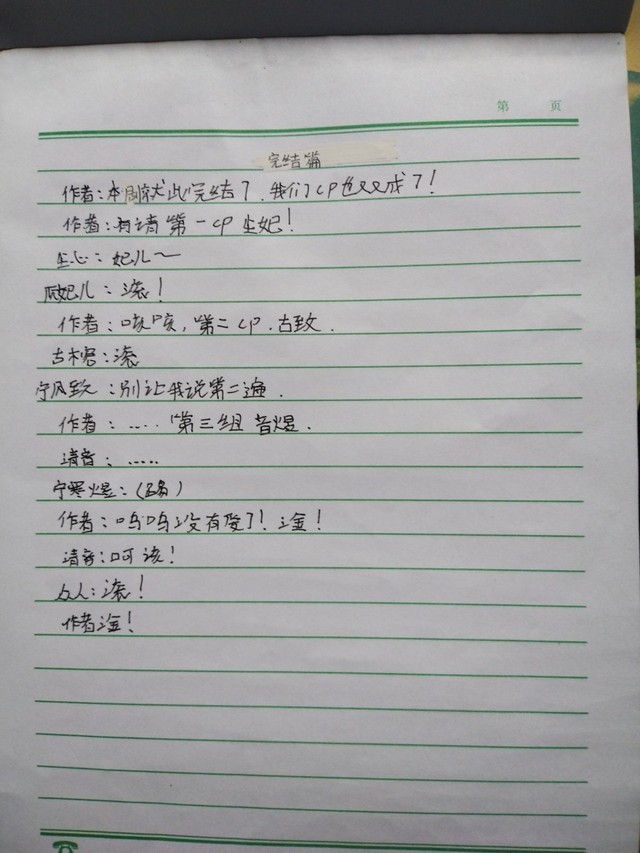 第 页
完结篇
作者：本剧就此完结了，我们了CP也又又成了！
作者：有请第一CP生妃！
生心：妃儿～
妃儿：滚！
作者：咳咳，第二CP.古致.
古木君：滚
宁风致：别让我说第二遍.
作者：..... 第三组 音煜.
清音：.....
宁寒煜：
作者：呜呜没有爱了！淦！
清音：呵 该！
众人：滚！
作者淦！